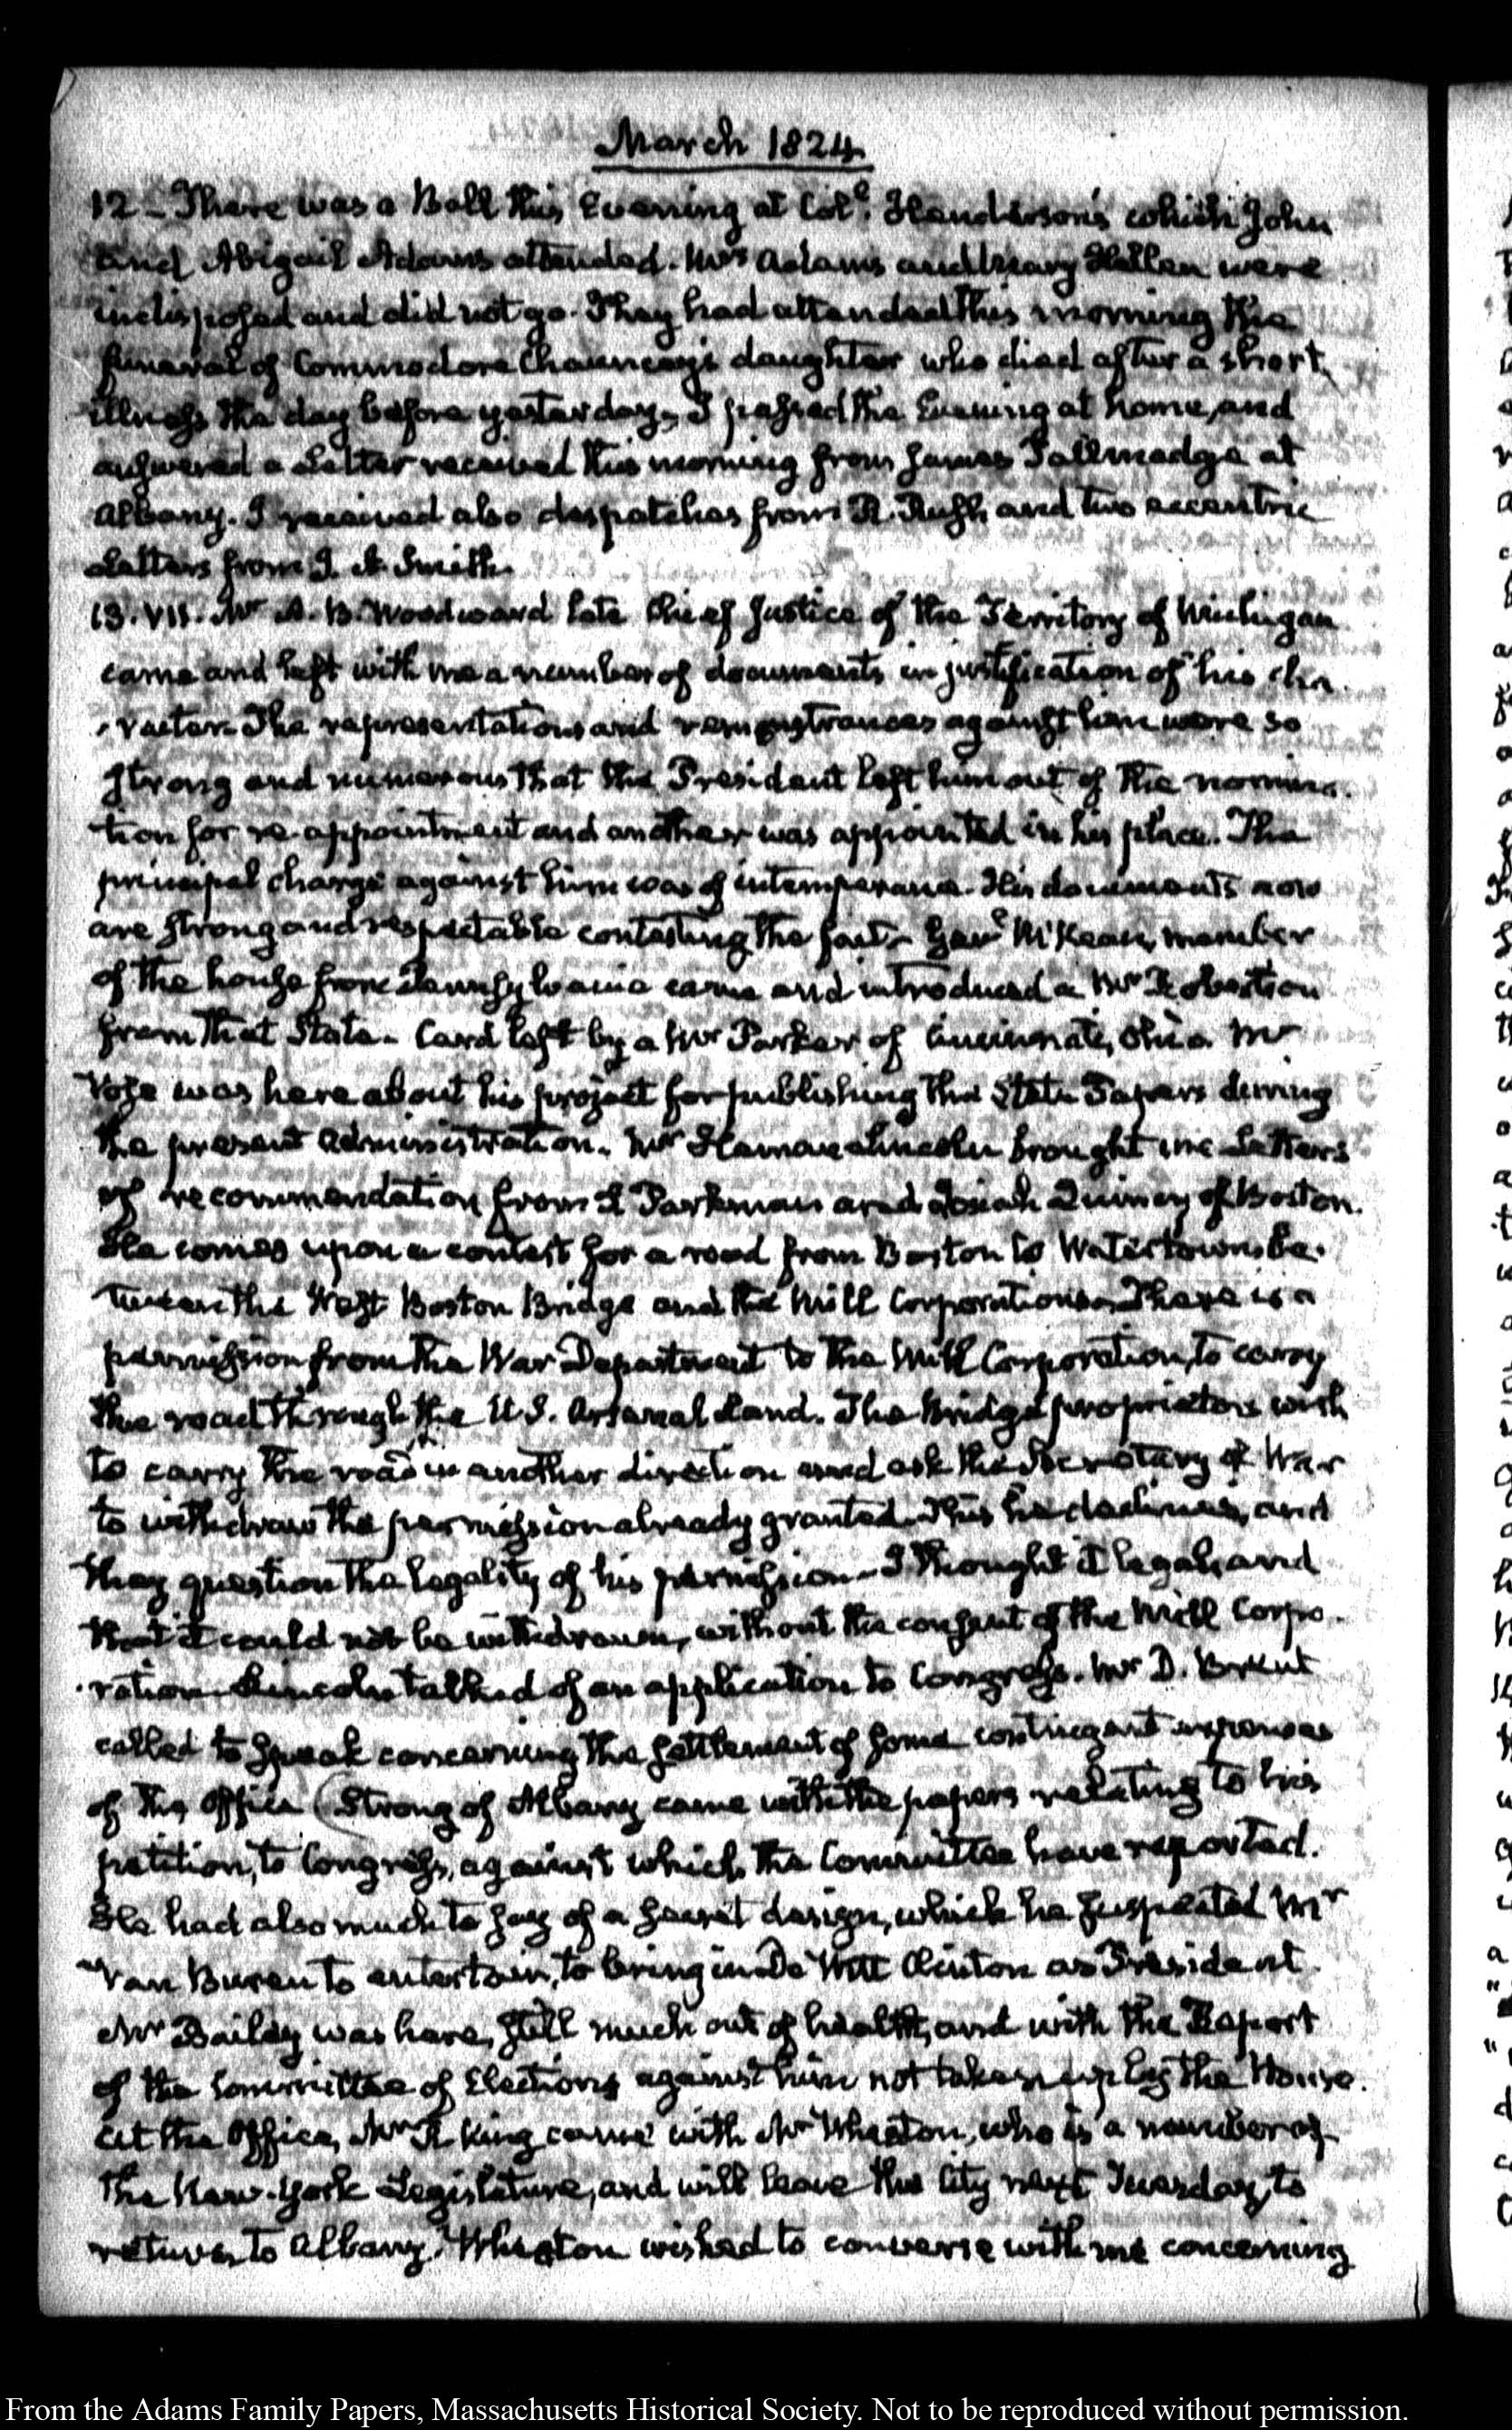 March 1824
12 - There was a Ball this Evening at Col.l Henderson's which John
and Abigail Adams attended. Mrs Adams and Mary Hellen were
indisposed and did not go. They had attended this morning the
funeral of Commodore Chauncey's daughter who died after a short
illness the day before yesterday. I passed the Evening at home, and
answered a Letter received this morning from James Tallmadge at
Albany. I received also despatches from R. Rush, and two eccentric
Letters from J. A. Smith.
13. VII. Mr A. B. Woodward late Chief Justice of the Territory of Michigan
came and left with me a number of documents in justification of his cha-
-racter. The representations and remonstrances against him were so
strong and numerous that the President left him out of the nomina-
tion for re-appointment and another was appointed in his place. The
principal charge against him was of intemperance. His documents now
are strong and respectable contesting the fact. Genl McKean, member
of the house from Pennsylvania came and introduced a Mr Robertson
from that State. Card left by a Mr Parker of Cincinnati, Ohio. Mr
Vose was here about his project for publishing the State Papers during
the present Administration. Mr Heman Lincoln brought me Letters
of recommendation from Parkman and Josiah Quincy of Boston.
He comes upon a contest for a road from Boston to Watertown be-
tween the West Boston Bridge and the Mill Corporations. There is a
permission from the War Department to the Mill Corporation, to carry
the road through the U.S. Arsenal Land. The Bridge proprietors wish
to carry the road in another direction and ask the Secretary of War
to withdraw the permission already granted. This he declines, and
they question the legality of his permission - I thought it legal, and
that it could not be withdrawn, without the consent of the Mill Corpo-
-ration. Lincoln talked of an application to Congress. Mr D. Brent
called to speak concerning the settlement of some contingent expenses
of the Office (Strong of Albany came with the papers relating to his
petition, to Congress, against which the Committee have reported.
He had also much to say of a secret design, which he suspected Mr
Van Buren to entertain, to bring in De Witt Clinton as President
Mr Bailey was here, still much out of health, and with the Report
of the Committee of Elections against him not taken up by the House.
At the Office, Mr R King came with Mr Wheaton, who is a member of
the New-York Legislature, and will leave this City next Tuesday, to
return to Albany. Wheaton wished to converse with me concerning
From the Adams Family Papers, Massachusetts Historical Society. Not to be reproduced without permission.